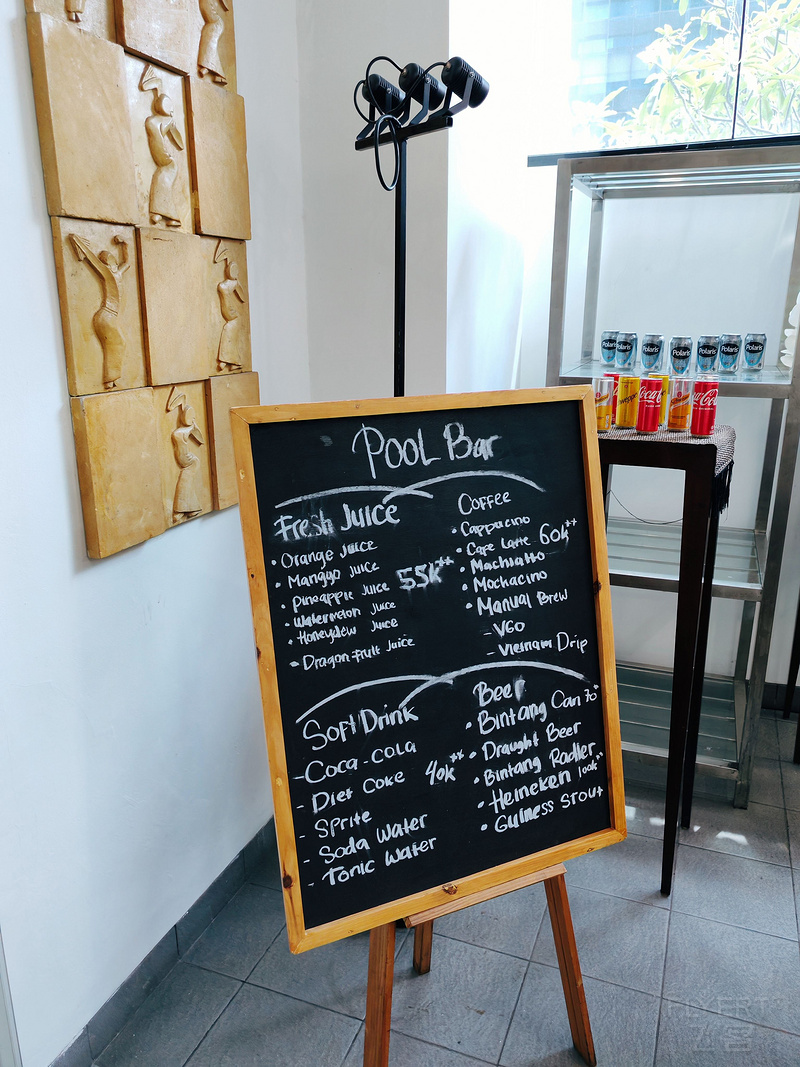 POOL Bar
Fresh Juice
• Orange Juice
• Manggo Juice
• Pineapple Juice
• Watermelon Juice
• Honeydew Juice
• Dragon Fruit Juice
55k++
Coffee
• Cappucino
• Cafe Latte
• Machiatto
• Mochacino
• Manual Brew
- V60
- Vietnam Drip
60k++
Soft Drink
- Coca-cola
- Diet Coke
- Sprite
- Soda Water
- Tonic Water
40k++
Beer
• Bintang Can 70"
• Draught Beer
• Bintang Radler
• Heineken 100k++
• Guiness Stout
Polaris
Polaris
Polaris
Polaris
Polaris
Polaris
Polaris
Coca-Cola
Coca-Cola
FLYERT